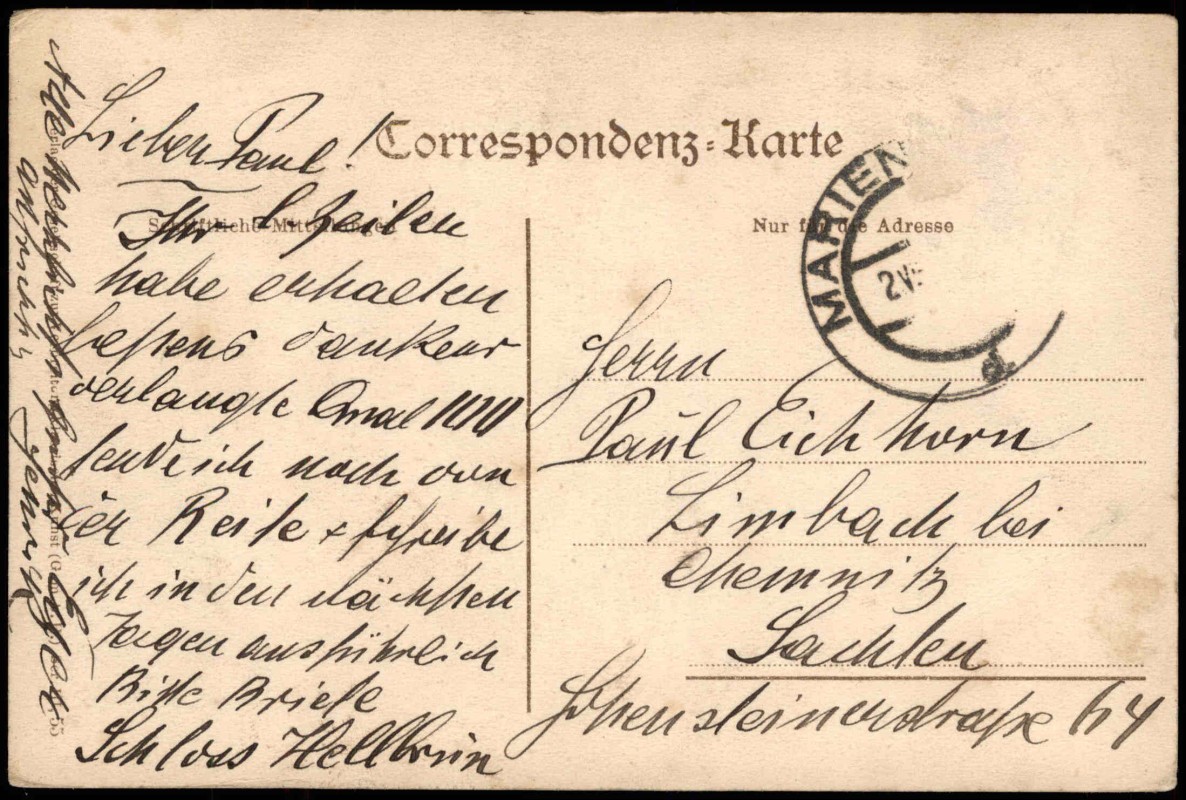 Correspondenz-Karte
Schriftliche Mitteilungen
Nur für die Adresse
MARIEN
2 VI
d
Lieber Paul!
Ihr l Zeilen
habe erhalten
bestens dankend
verlangte
sende ich noch von
der Reise + schreibe
ich in den nächsten
Tagen ausführlich
Bitte Briefe
Schloss Hellbrun
Herrn
Paul Eichhorn
Limbach bei
Chemnitz
Sachsen
Hohensteinerstraße 64